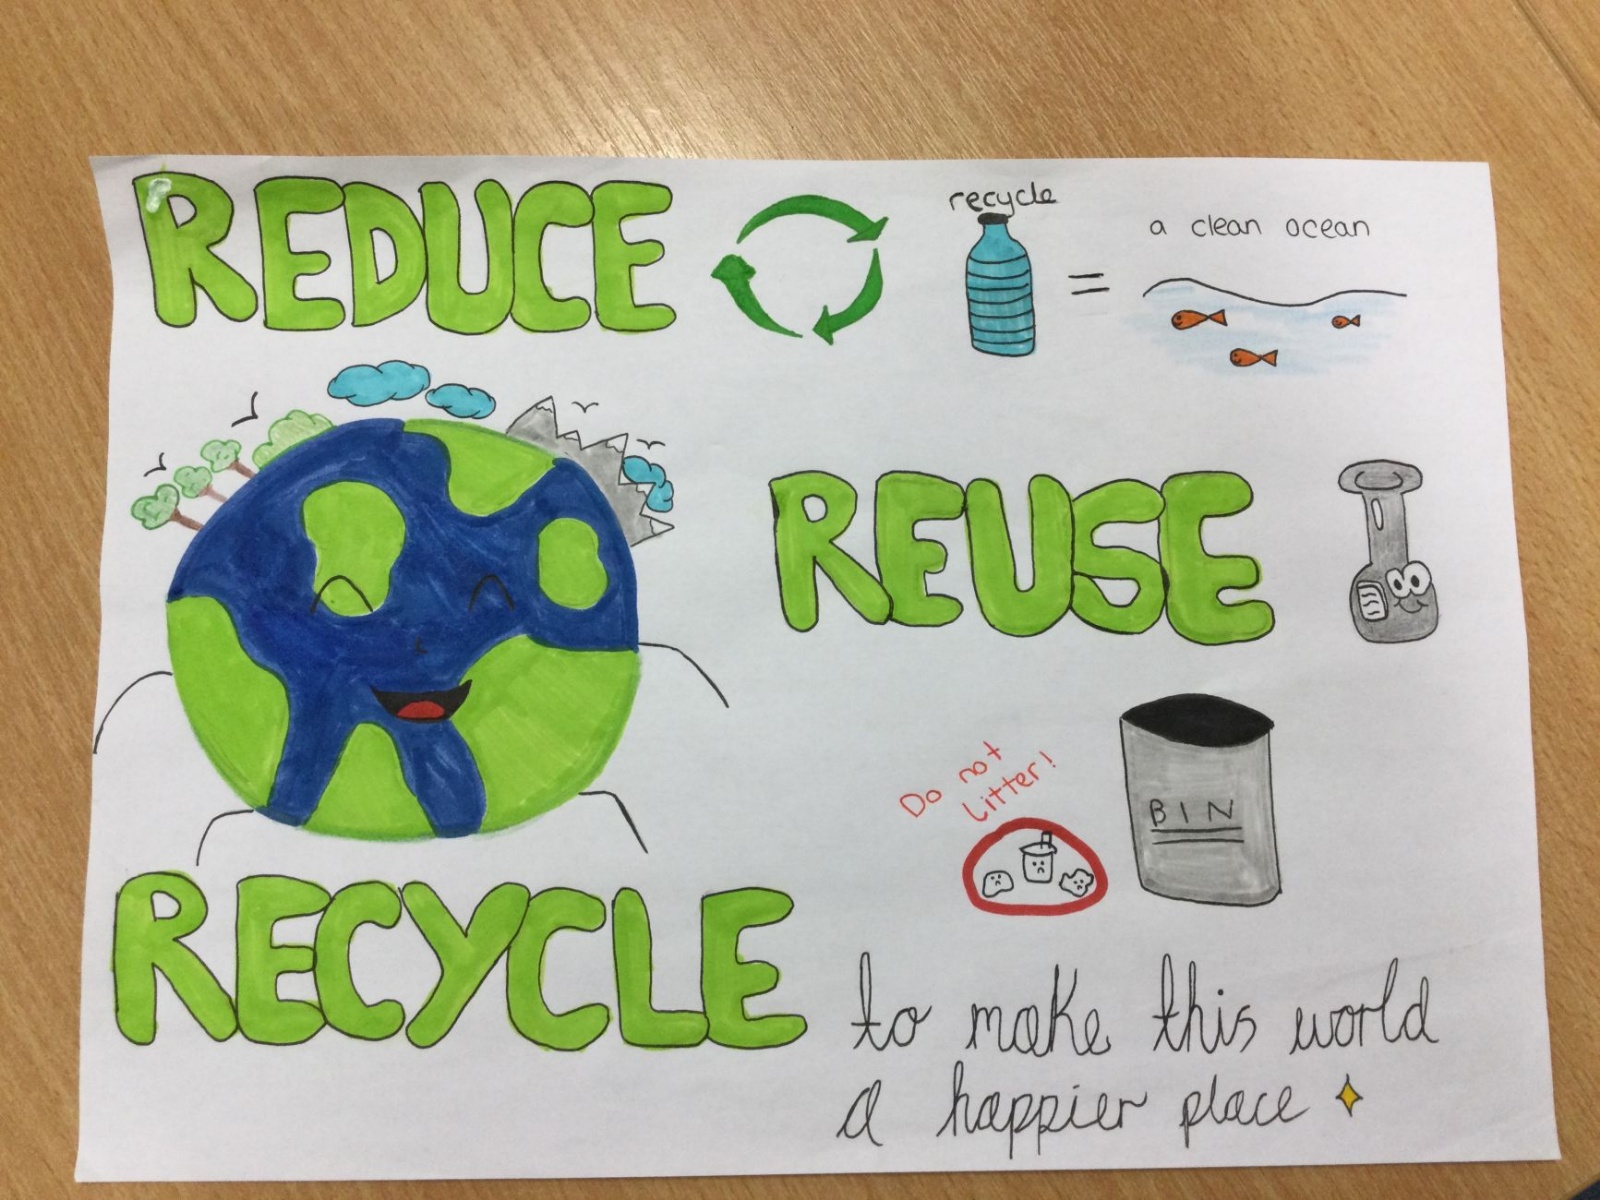 REDUCE
recycle
=
a clean ocean
REUSE
Do not
Litter!
BIN
RECYCLE
to make this world
a happier place